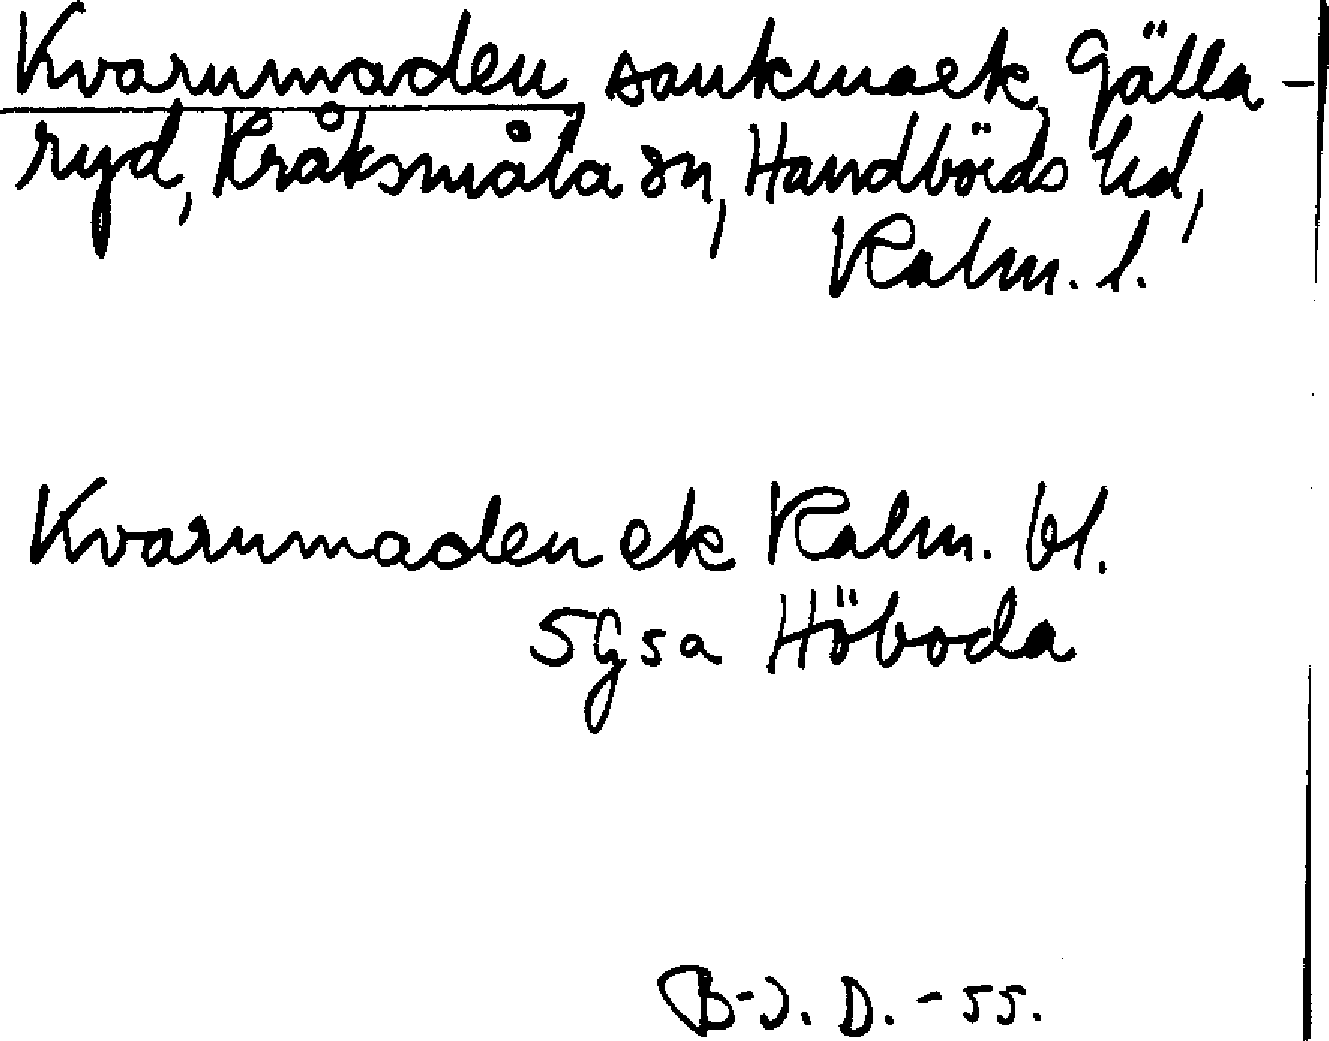 Kvarnmaden sankmark, Gälla-
ryd, Kråksmåla sn, Handbörds hd,
Kalm. l.
Kvarnmaden ek Kalm. bl.
5G5a Höboda
B-J. D. -55.